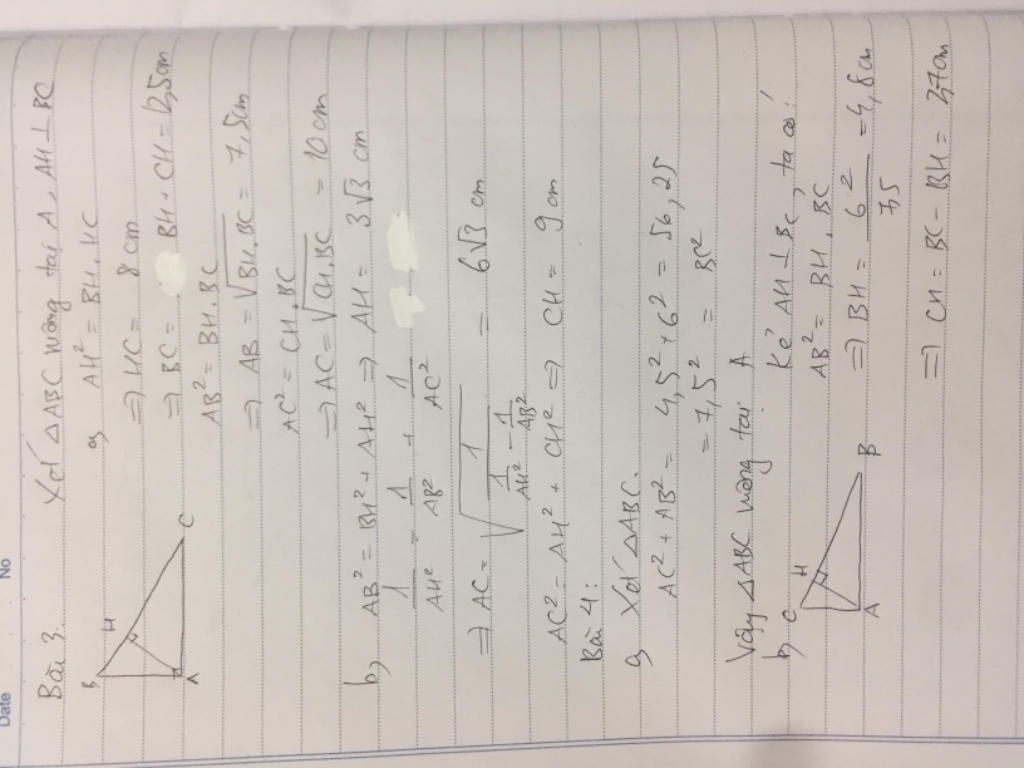 Date No
Bài 3. Xét △ABC vuông tại A, AH ⊥ BC
a, AH² = BH.HC
=> HC = 8 cm
=> BC = BH + CH = 12,5cm
AB² = BH.BC
=> AB = √BH.BC = 7,5cm
AC² = CH.BC
=> AC = √CH.BC = 10cm
b, AB² = BH² + AH² => AH = 3√3 cm
1/AH² = 1/AB² + 1/AC²
=> AC = √(1/(1/AH² - 1/AB²)) = 6√3 cm
AC² = AH² + CH² => CH = 9 cm
Bài 4:
a, Xét △ABC.
AC² + AB² = 4,5² + 6² = 56,25
= 7,5² = BC²
Vậy △ABC vuông tại A
b, Kẻ AH ⊥ BC, ta có:
AB² = BH.BC
=> BH = 6²/7,5 = 4,8cm
=> CH = BC - BH = 2,7cm
B H A C
C H A B